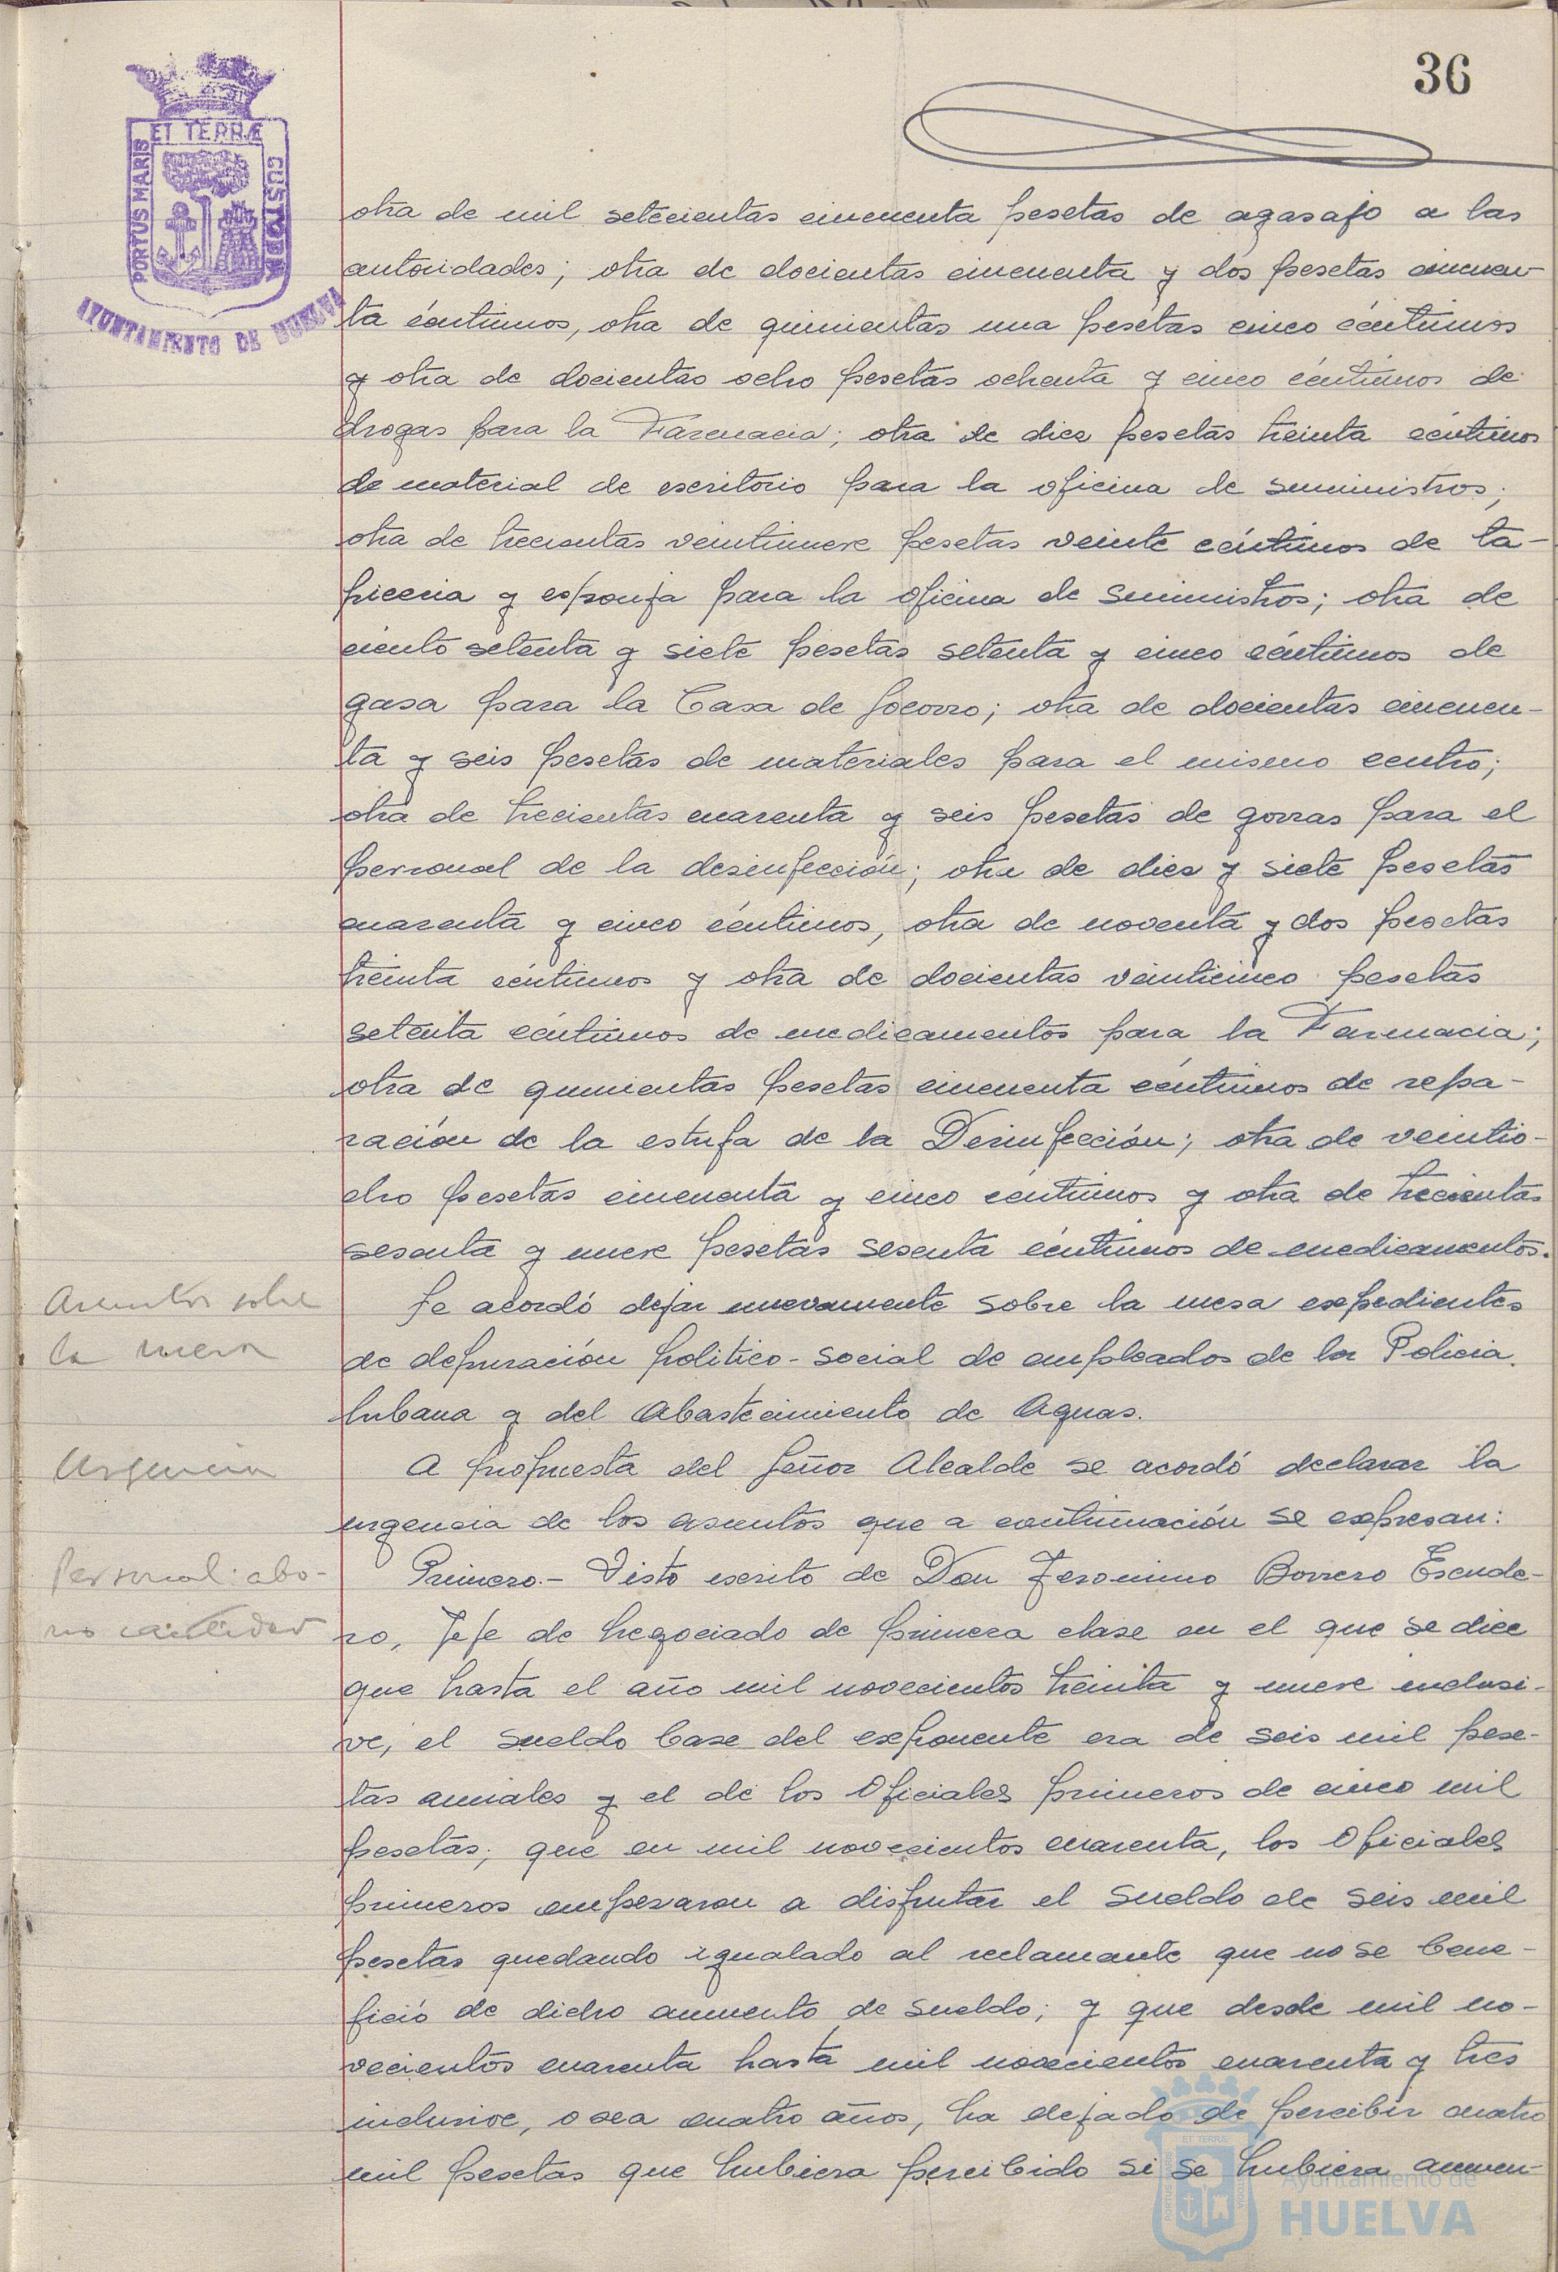 36
ET TERRÆ
PORTUS MARIS
CUSTODIA
AYUNTAMIENTO DE HUELVA
otra de mil setecientas cincuenta pesetas de agasajo a las
autoridades; otra de docientas cincuenta y dós pesetas cincuen-
ta céntimos, otra de quinientas una pesetas cinco céntimos
y otra de docientas ocho pesetas ochenta y cinco céntimos de
drogas para la Farmacia; otra de diez pesetas treinta céntimos
de material de escritorio para la oficina de suministros;
otra de trecientas veintinueve pesetas veinte céntimos de ta-
piceria y esponja para la oficina de suministros; otra de
ciento setenta y siete pesetas setenta y cinco céntimos de
gasa para la Casa de Socorro; otra de docientas cincuen-
ta y seis pesetas de materiales para el mismo centro;
otra de trecientas cuarenta y seis pesetas de gorras para el
personal de la desinfección; otra de diez y siete pesetas
cuarenta y cinco céntimos, otra de noventa y dos pesetas
treinta céntimos y otra de docientas veinticinco pesetas
setenta céntimos de medicamentos para la Farmacia;
otra de quinientas pesetas cincuenta céntimos de repa-
ración de la estufa de la Desinfección; otra de veintio-
cho pesetas cincuenta y cinco céntimos y otra de trecientas
sesenta y nueve pesetas sesenta céntimos de medicamentos.
Asuntos sobre
la mesa
Se acordó dejar nuevamente sobre la mesa expedientes
de depuración politico-social de empleados de la Policia
Urbana y del Abastecimiento de Aguas.
Urgencia
A propuesta del Señor Alcalde se acordó declarar la
urgencia de los asuntos que a continuación se expresan:
Personal abo-
no cantidad
Primero.- Visto escrito de Don Jeronimo Borrero Escude-
ro, Jefe de Negociado de primera clase en el que se dice
que hasta el año mil novecientos treinta y nueve inclusi-
ve, el sueldo base del exponente era de seis mil pese-
tas anuales y el de los Oficiales primeros de cinco mil
pesetas; que en mil novecientos cuarenta, los Oficiales
primeros empezaron a disfrutar el sueldo de seis mil
pesetas quedando igualado al reclamante que no se bene-
fició de dicho aumento de sueldo; y que desde mil no-
vecientos cuarenta hasta mil novecientos cuarenta y tres
inclusive, o sea cuatro años, ha dejado de percibir cuatro
mil pesetas que hubiera percibido si se hubiera aumen-
Ayuntamiento de
HUELVA